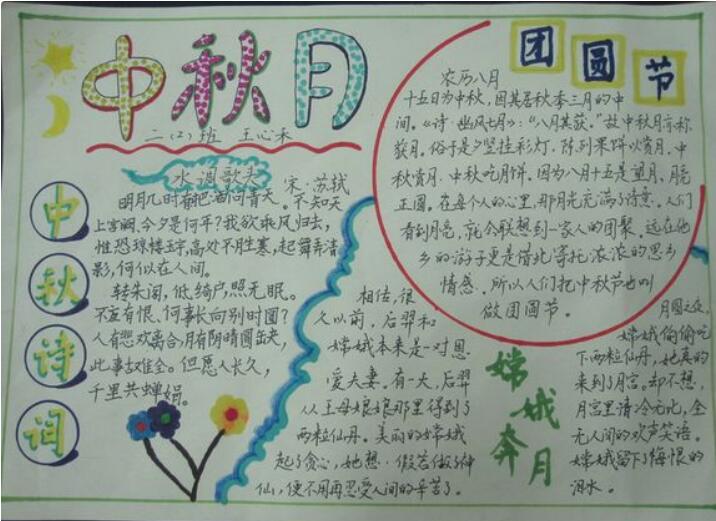 中秋月
二(2)班 王心禾
中秋诗词
水调歌头
宋·苏轼
明月几时有把酒问青天。不知天
上宫阙、今夕是何年?我欲乘风归去,
惟恐琼楼玉宇,高处不胜寒,起舞弄清
影,何似在人间。
转朱阁,低绮户,照无眠。
不应有恨、何事长向别时圆?
人有悲欢离合,月有阴晴圆缺,
此事古难全。但愿人长久,
千里共蝉娟。
团圆节
农历八月
十五日为中秋,因其居秋季三月的中
间。《诗·豳风七月》:“八月其获。”故中秋月亦称
获月。俗子是夕竖挂彩灯,陈列果饼以赏月,中
秋赏月,中秋吃月饼。因为八月十五是望月,月亮
正圆。在每个人的心里,那月光充满了诗意。人们
看到月亮,就会联想到一家人的团聚。远在他
乡的游子更是借此寄托浓浓的思乡
情感。所以人们把中秋节也叫
做团圆节。
嫦娥奔月
相传,很
久以前,后羿和
嫦娥本来是一对恩
爱夫妻。有一天,后羿
从王母娘娘那里得到了
两粒仙丹。美丽的嫦娥
起了贪心,她想·假若做了神
仙,便不用再忍受人间的辛苦了。
月圆之夜,
嫦娥偷偷吃
下两粒仙丹,她真的
来到了月宫。却不想,
月宫里清冷无比,全
无人间的欢声笑语。
嫦娥留下了悔恨的
泪水。